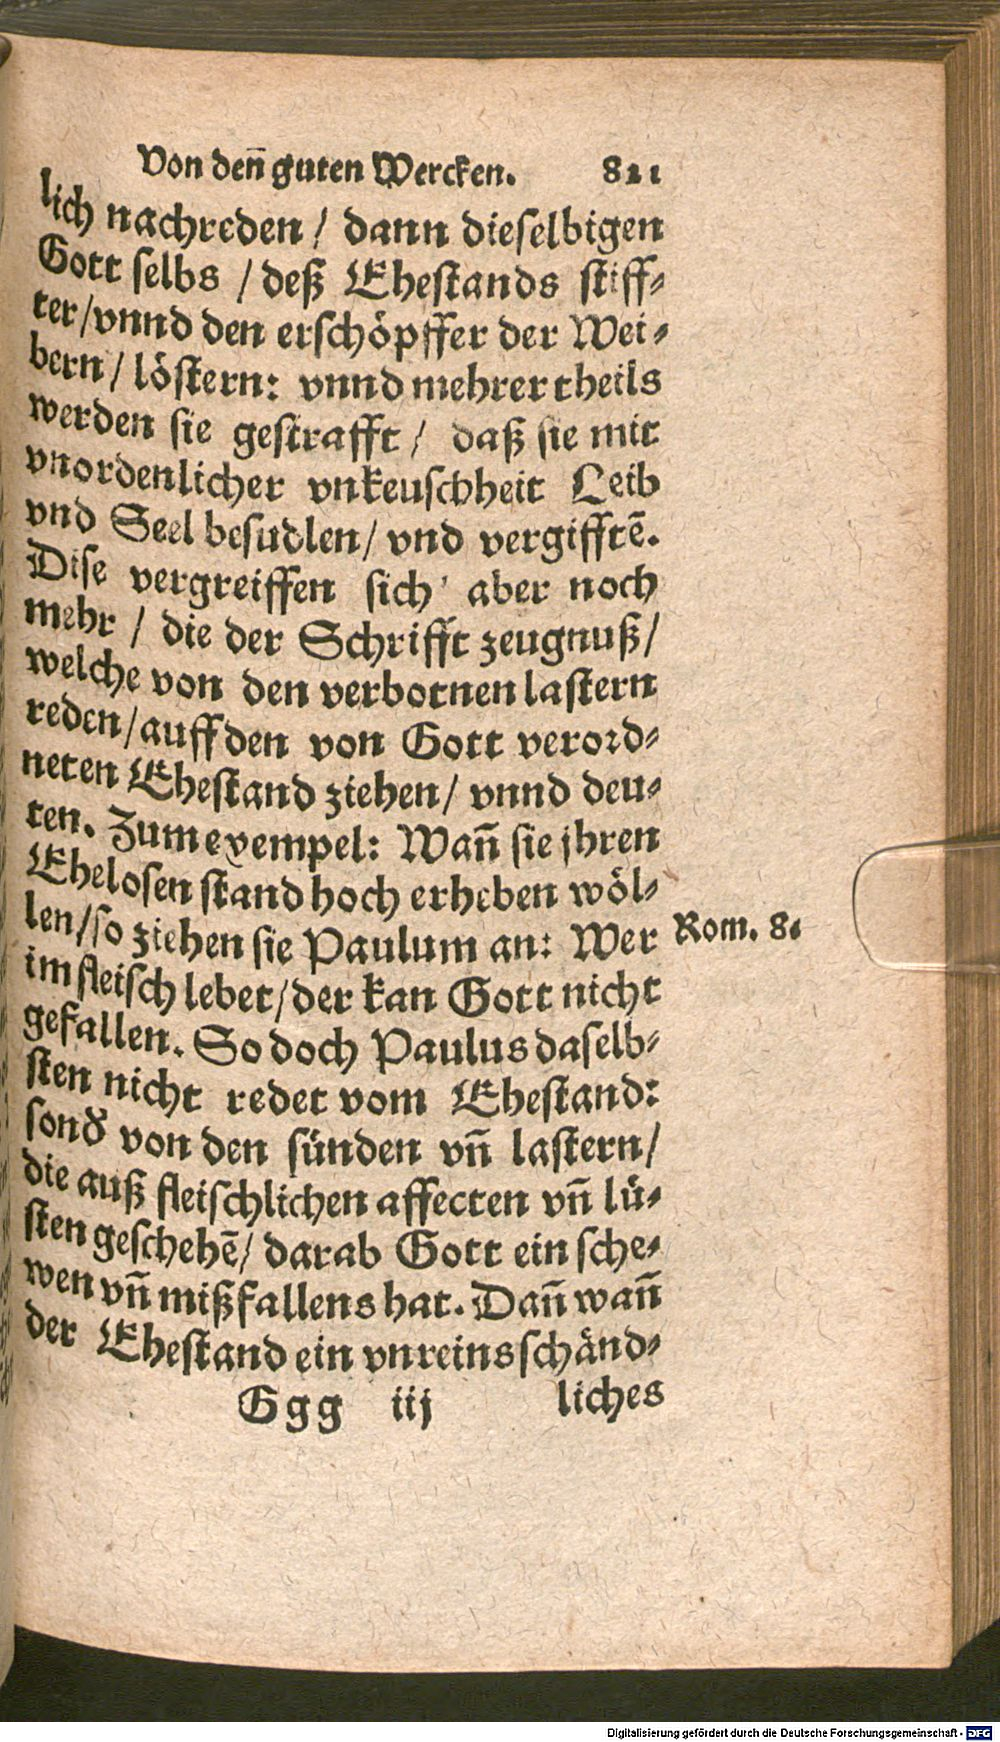 Von deñ guten Wercken. 821
lich nachreden / dann dieselbigen
Gott selbs / deß Ehestands stiff-
ter / vnnd den erschöpffer der Wei-
bern / löstern: vnnd mehrer theils
werden sie gestrafft / daß sie mit
vnordenlicher vnkeuschheit Leib
vnd Seel besudlen / vnd vergifftẽ.
Dise vergreiffen sich aber noch
mehr / die der Schrifft zeugnuß /
welche von den verbotnen lastern
reden / auff den von Gott verord-
neten Ehestand ziehen / vnnd deu-
ten. Zum exempel: Wañ sie jhren
Ehelosen stand hoch erheben wöl-
len / so ziehen sie Paulum an: Wer
Rom. 8.
im fleisch lebet / der kan Gott nicht
gefallen. So doch Paulus daselb-
sten nicht redet vom Ehestand:
sond' von den sünden vñ lastern /
die auß fleischlichen affecten vñ lü-
sten geschehẽ / darab Gott ein sche-
wen vñ mißfallens hat. Dañ wañ
der Ehestand ein vnreins schänd-
Ggg iij liches
Digitalisierung gefördert durch die Deutsche Forschungsgemeinschaft - DFG